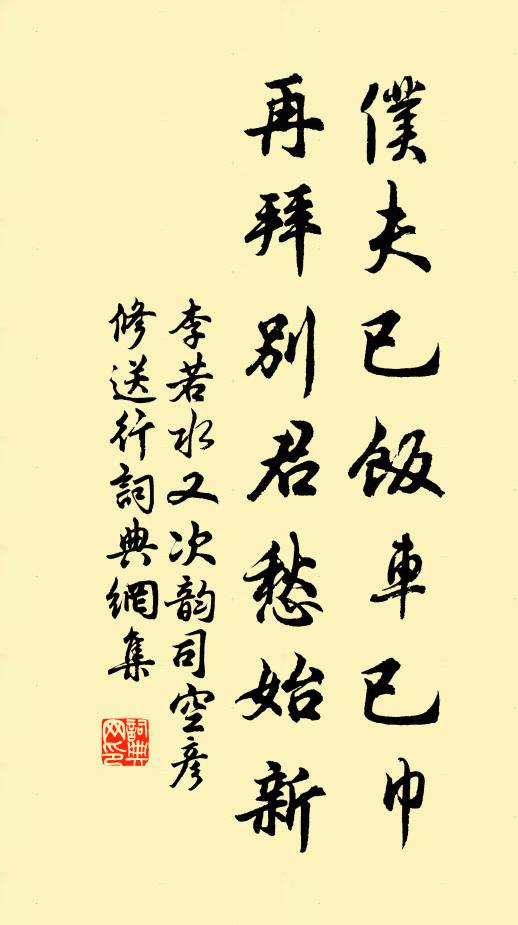 僕夫已飯車已巾
再拜別君愁始新
李若水又次韵司空彦
修送行詞典網集
詞典网印